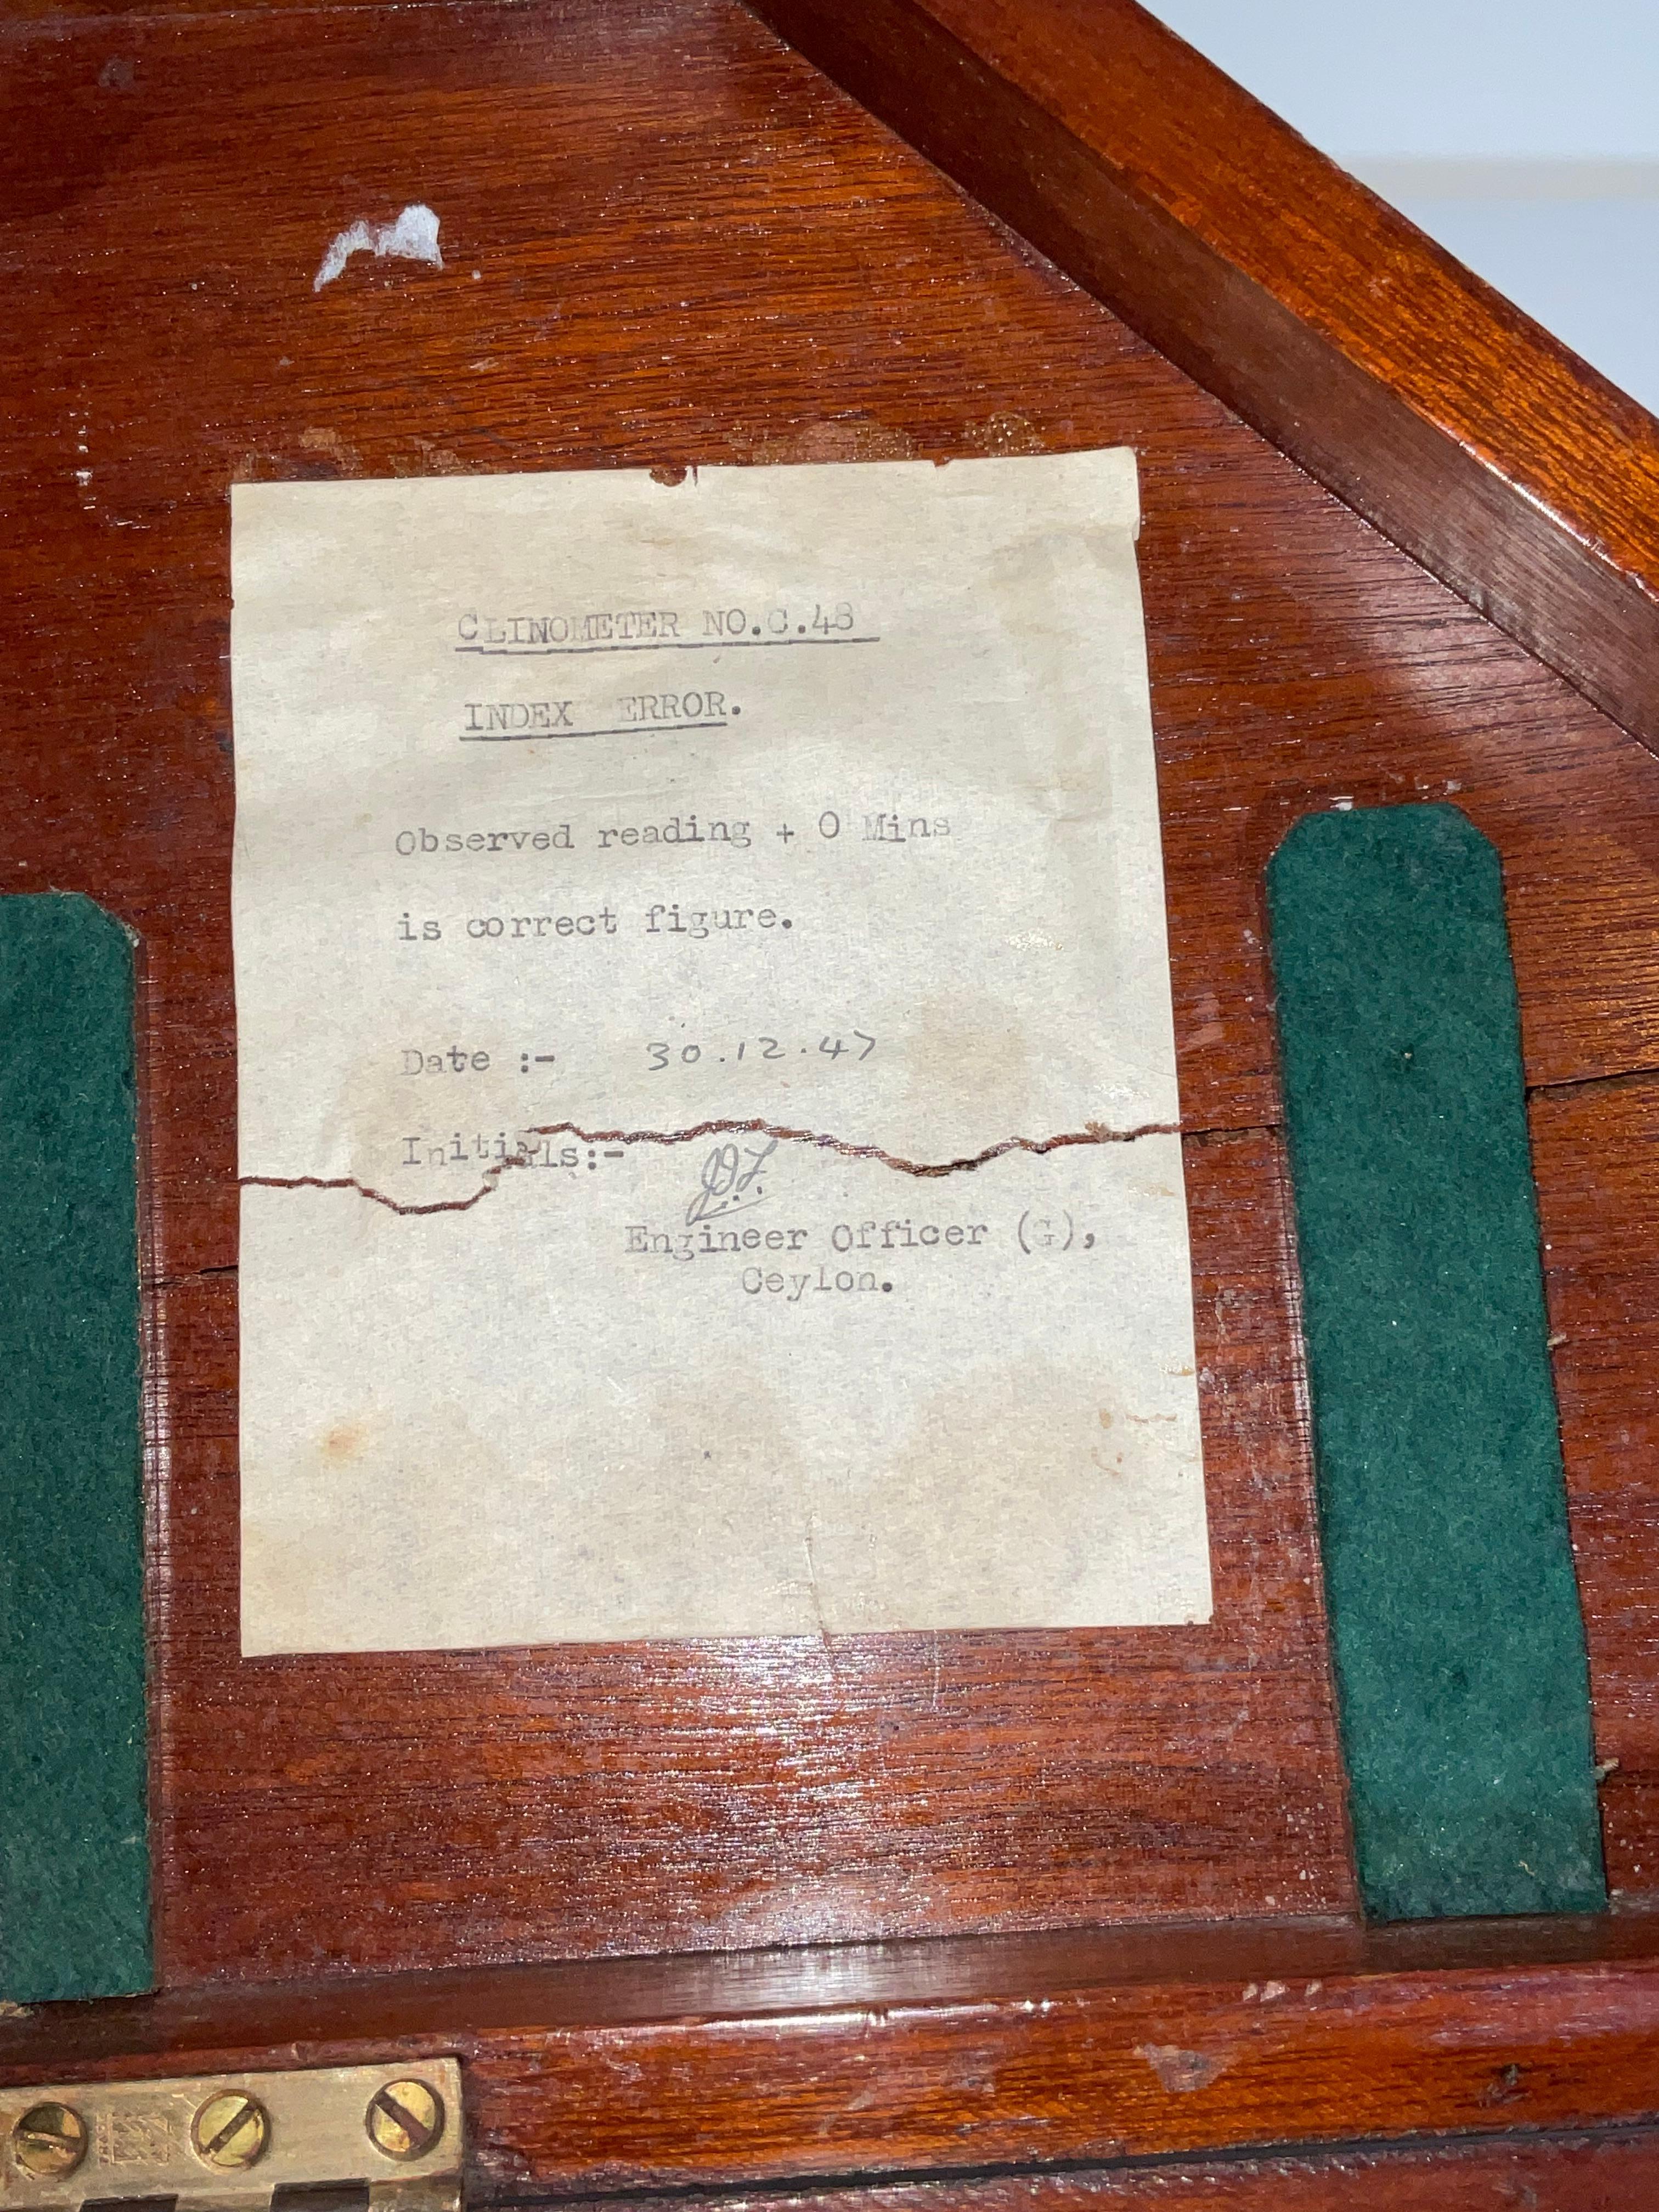 CLINOMETER NO.C.48
INDEX ERROR.
Observed reading + 0 Mins
is correct figure.
Date :- 30.12.47
Initials:-
Engineer Officer (G),
Ceylon.